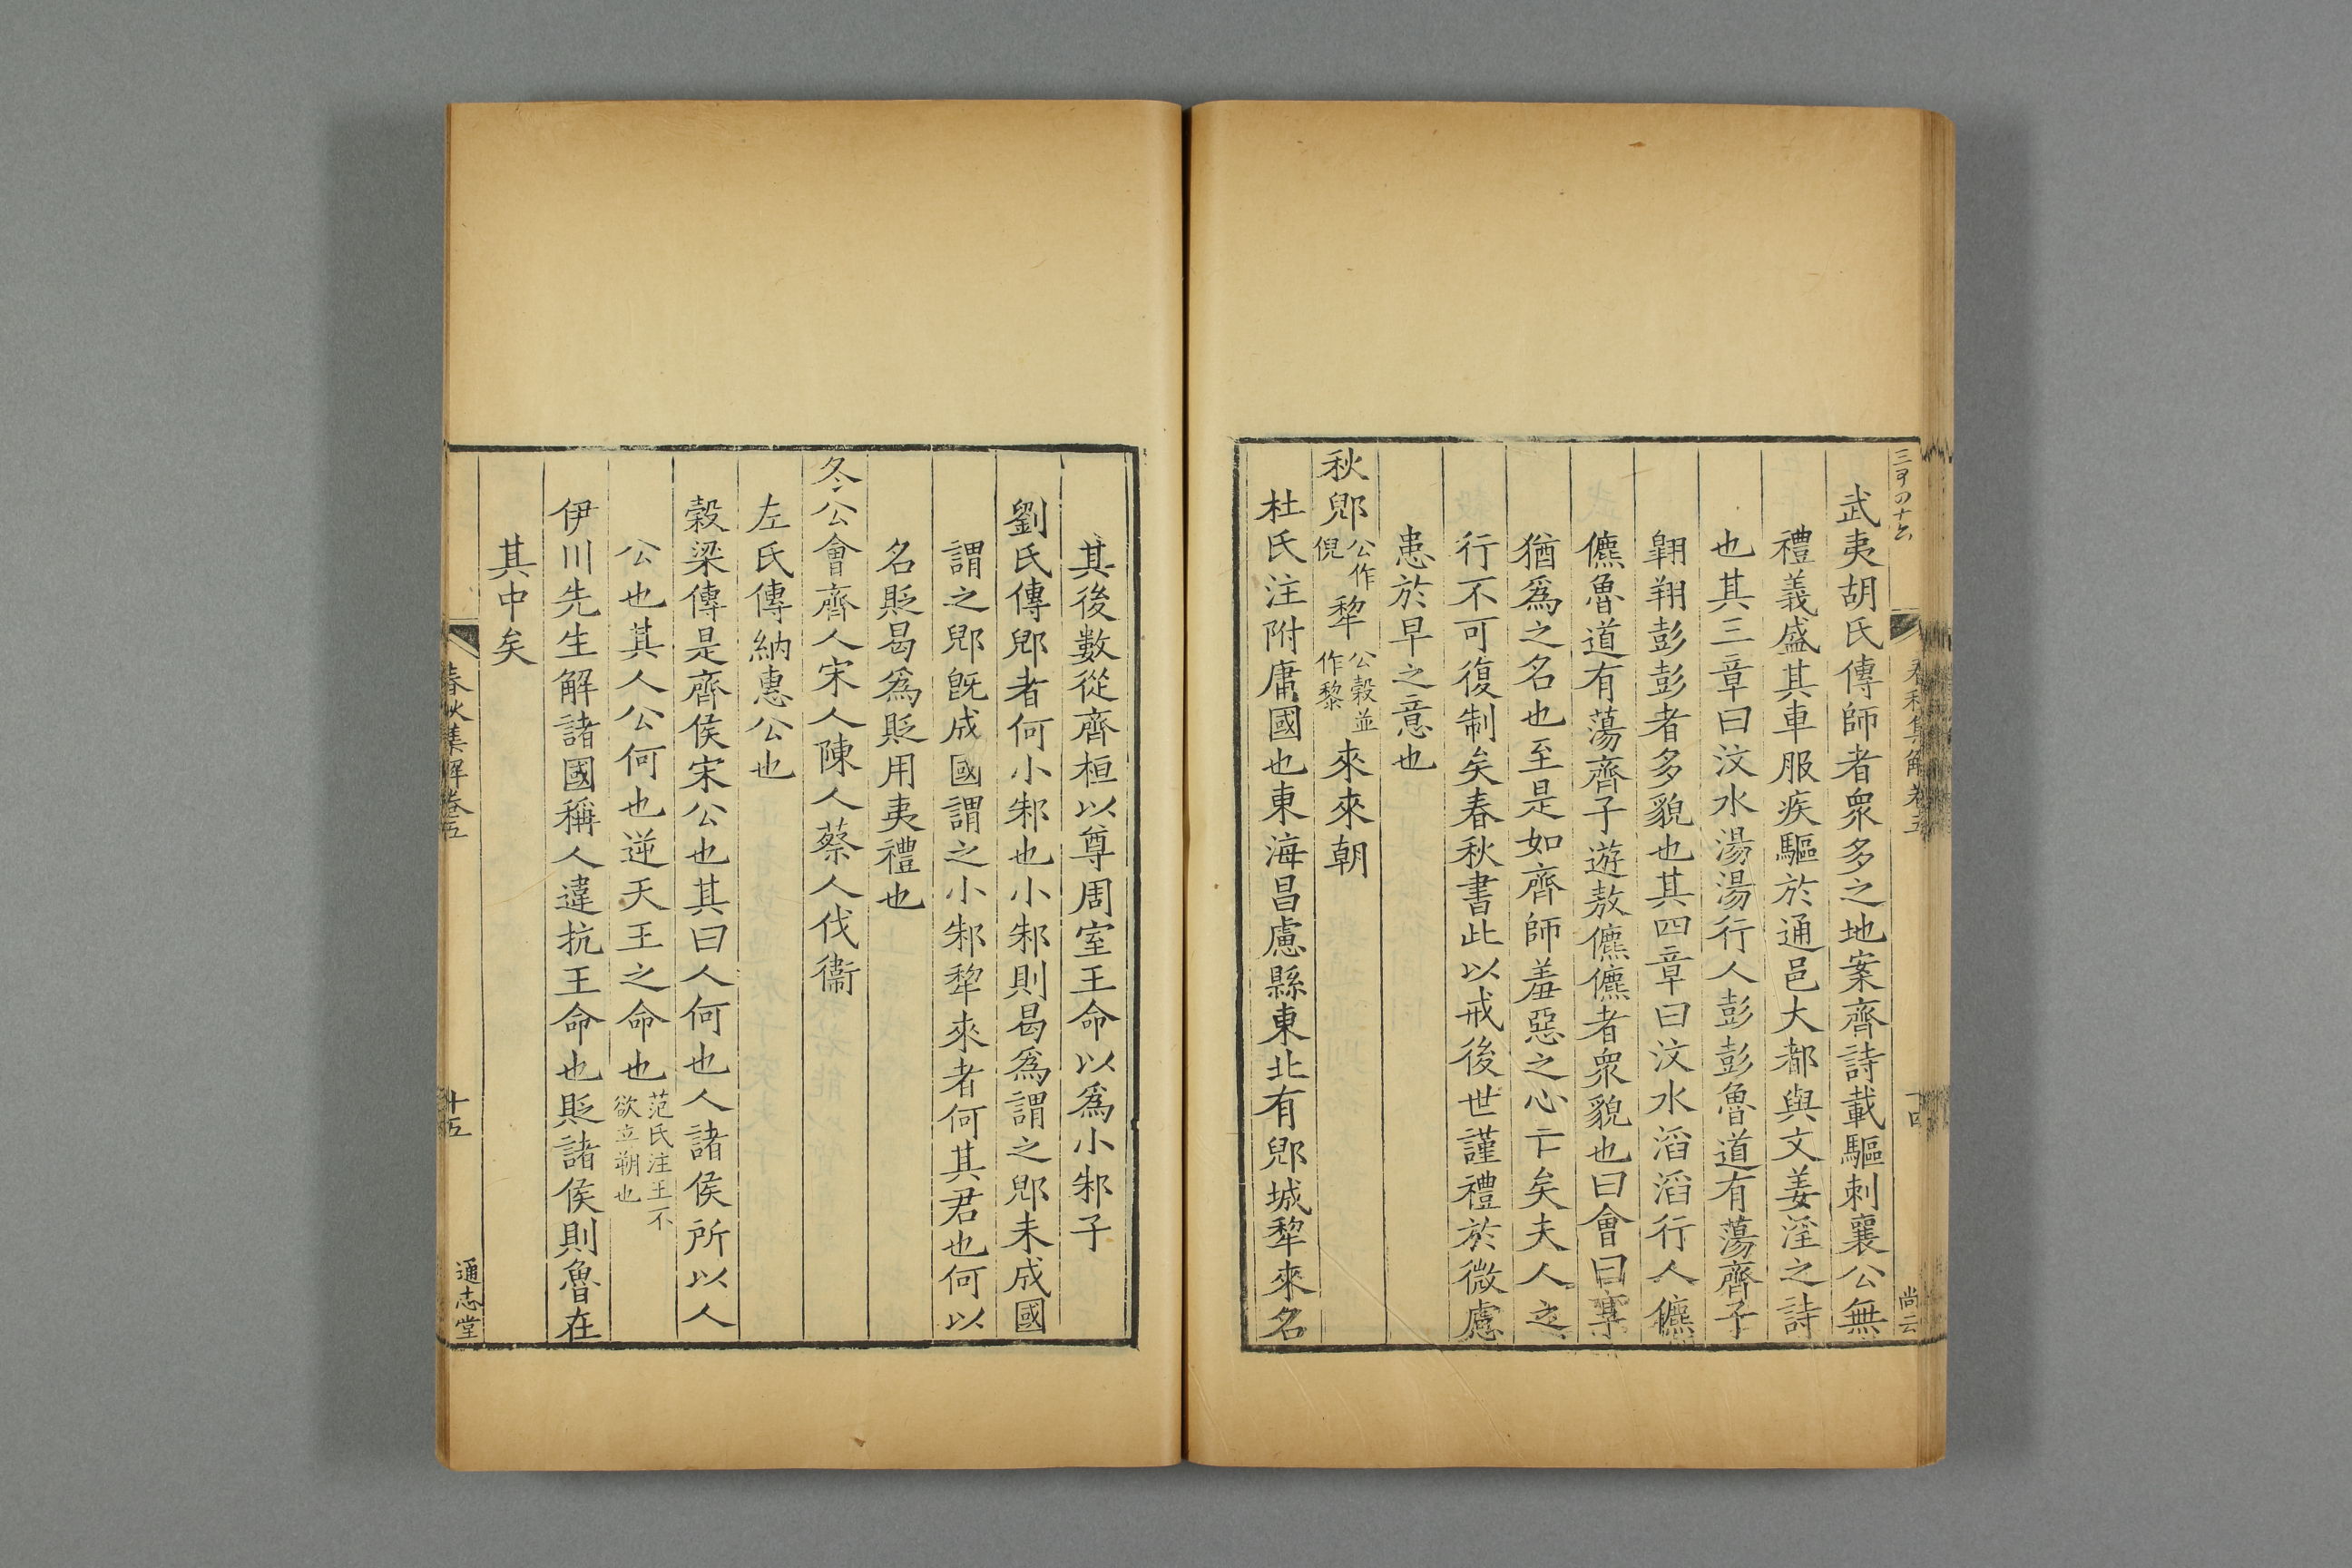 武夷胡氏傳師者衆多之地案齊詩載驅刺襄公無
禮義盛其車服疾驅於通邑大都與文姜淫之詩
也其三章曰汶水湯湯行人彭彭魯道有蕩齊子
翺翔彭彭者多貌也其四章曰汶水滔滔行人儦
儦魯道有蕩齊子遊敖儦儦者衆貌也曰會曰享
猶爲之名也至是如齊師羞惡之心亡矣夫人之
行不可復制矣春秋書此以戒後世謹禮於微慮
患於早之意也
秋郳公作倪犂公穀並作黎來來朝
杜氏注附庸國也東海昌慮縣東北有郳城犂來名
春秋集解卷五
十四
尚云
其後數從齊桓以尊周室王命以爲小邾子
劉氏傳郳者何小邾也小邾則曷爲謂之郳未成國
謂之郳旣成國謂之小邾犂來者何其君也何以
名貶曷爲貶用夷禮也
冬公會齊人宋人陳人蔡人伐衞
左氏傳納惠公也
穀梁傳是齊侯宋公也其曰人何也人諸侯所以人
公也其人公何也逆天王之命也范氏注王不欲立朔也
伊川先生解諸國稱人違抗王命也貶諸侯則魯在
其中矣
春秋集解卷五
十五
通志堂